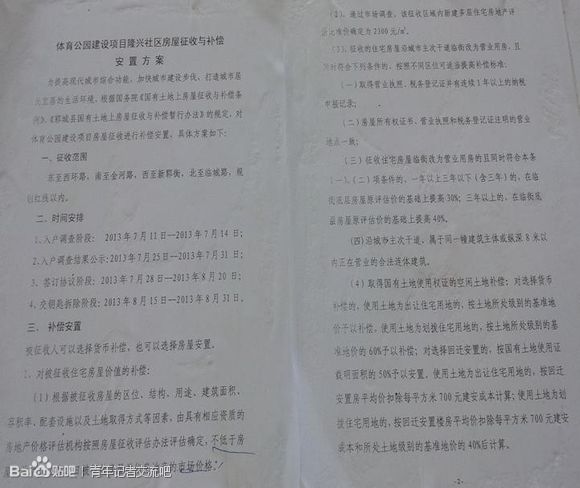 体育公园建设项目隆兴社区房屋征收与补偿
安 置 方 案
为提高现代城市综合功能,加快城市建设步伐,打造城市居
民宜居的生活环境,根据国务院《国有土地上房屋征收与补偿条
例》、《郓城县国有土地上房屋征收与补偿暂行办法》的规定,对
体育公园建设项目房屋征收进行补偿安置,具体方案如下:
一、征收范围
东至西环路,南至金河路,西至新郓街,北至临城路,规
划红线以内。
二、时间安排
1.入户调查阶段: 2013年7月11日—2013年7月14日;
2.入户调查结果公示:2013年7月25日—2013年7月31日;
3. 签订协议阶段:2013年7月28日—2013年8月20日;
4.交钥匙拆除阶段:2013年8月15日—2013年8月31日。
三、 补偿安置
被征收人可以选择货币补偿,也可以选择房屋安置。
1. 对被征收住宅房屋价值的补偿:
(1)根据被征收房屋的区位、结构、用途、建筑面积、
容积率、配套设施以及土地取得方式等因素,由具有相应资质的
房地产价格评估机构按照房屋征收评估办法评估确定,不低于房
的市场价格。
(2)、通过市场调查,该征收区域内新建多层住宅房地产评
估比准价确定为2300元/m²。
(3)、征收的住宅房屋沿城市主次干道临街改为营业用房,且
同时符合下列条件的,按照不同区位可适当提高补偿标准:
(一)取得营业执照、税务登记证并有连续1年以上的纳税
申报记录;
(二)房屋所有权证书、营业执照和税务登记证注明的营业
地点一致;
(三)征收住宅房屋临街改为营业用房的且同时符合本条
(一)、(二)项条件的,一年以上三年以下(含三年)的,在临
街底层房屋原评估价的基础上提高30%;三年以上的,在临街底
层房屋原评估价的基础上提高40%。
(四)沿城市主次干道、属于同一幢建筑主体或纵深8米以
内正在营业的合法连体建筑。
(4)取得国有土地使用权证的空闲土地补偿:对选择货币
补偿的,使用土地为出让住宅用地的,按土地所处级别的基准地
价予以补偿,使用土地为划拨住宅用地的,按土地所处级别的基
准地价的60%予以补偿;对选择回迁安置的,按国有土地使用证
载明面积的50%予以安置。使用土地为出让住宅用地的,按回迁
安置房平均价扣除每平方米700元建安成本计算;使用土地为划
拨住宅用地的,按回迁安置楼房平均价扣除每平方米700元建安
成本和所处土地级别的基准地价的40%后计算。
-2-
Bai贴吧 | 青年记者交流吧